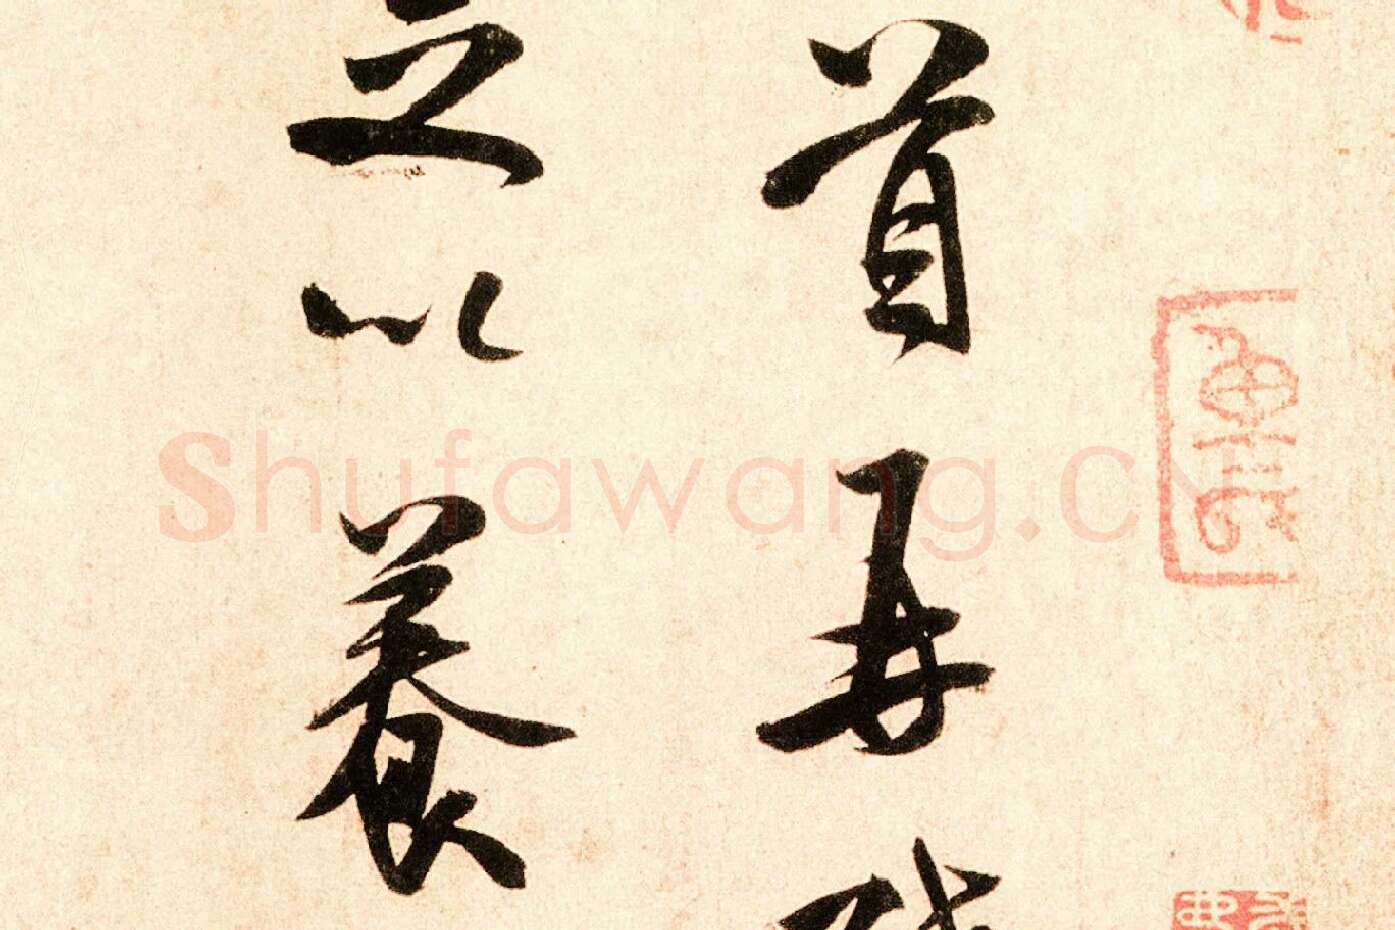 首再
之以養
Shufawang.CN